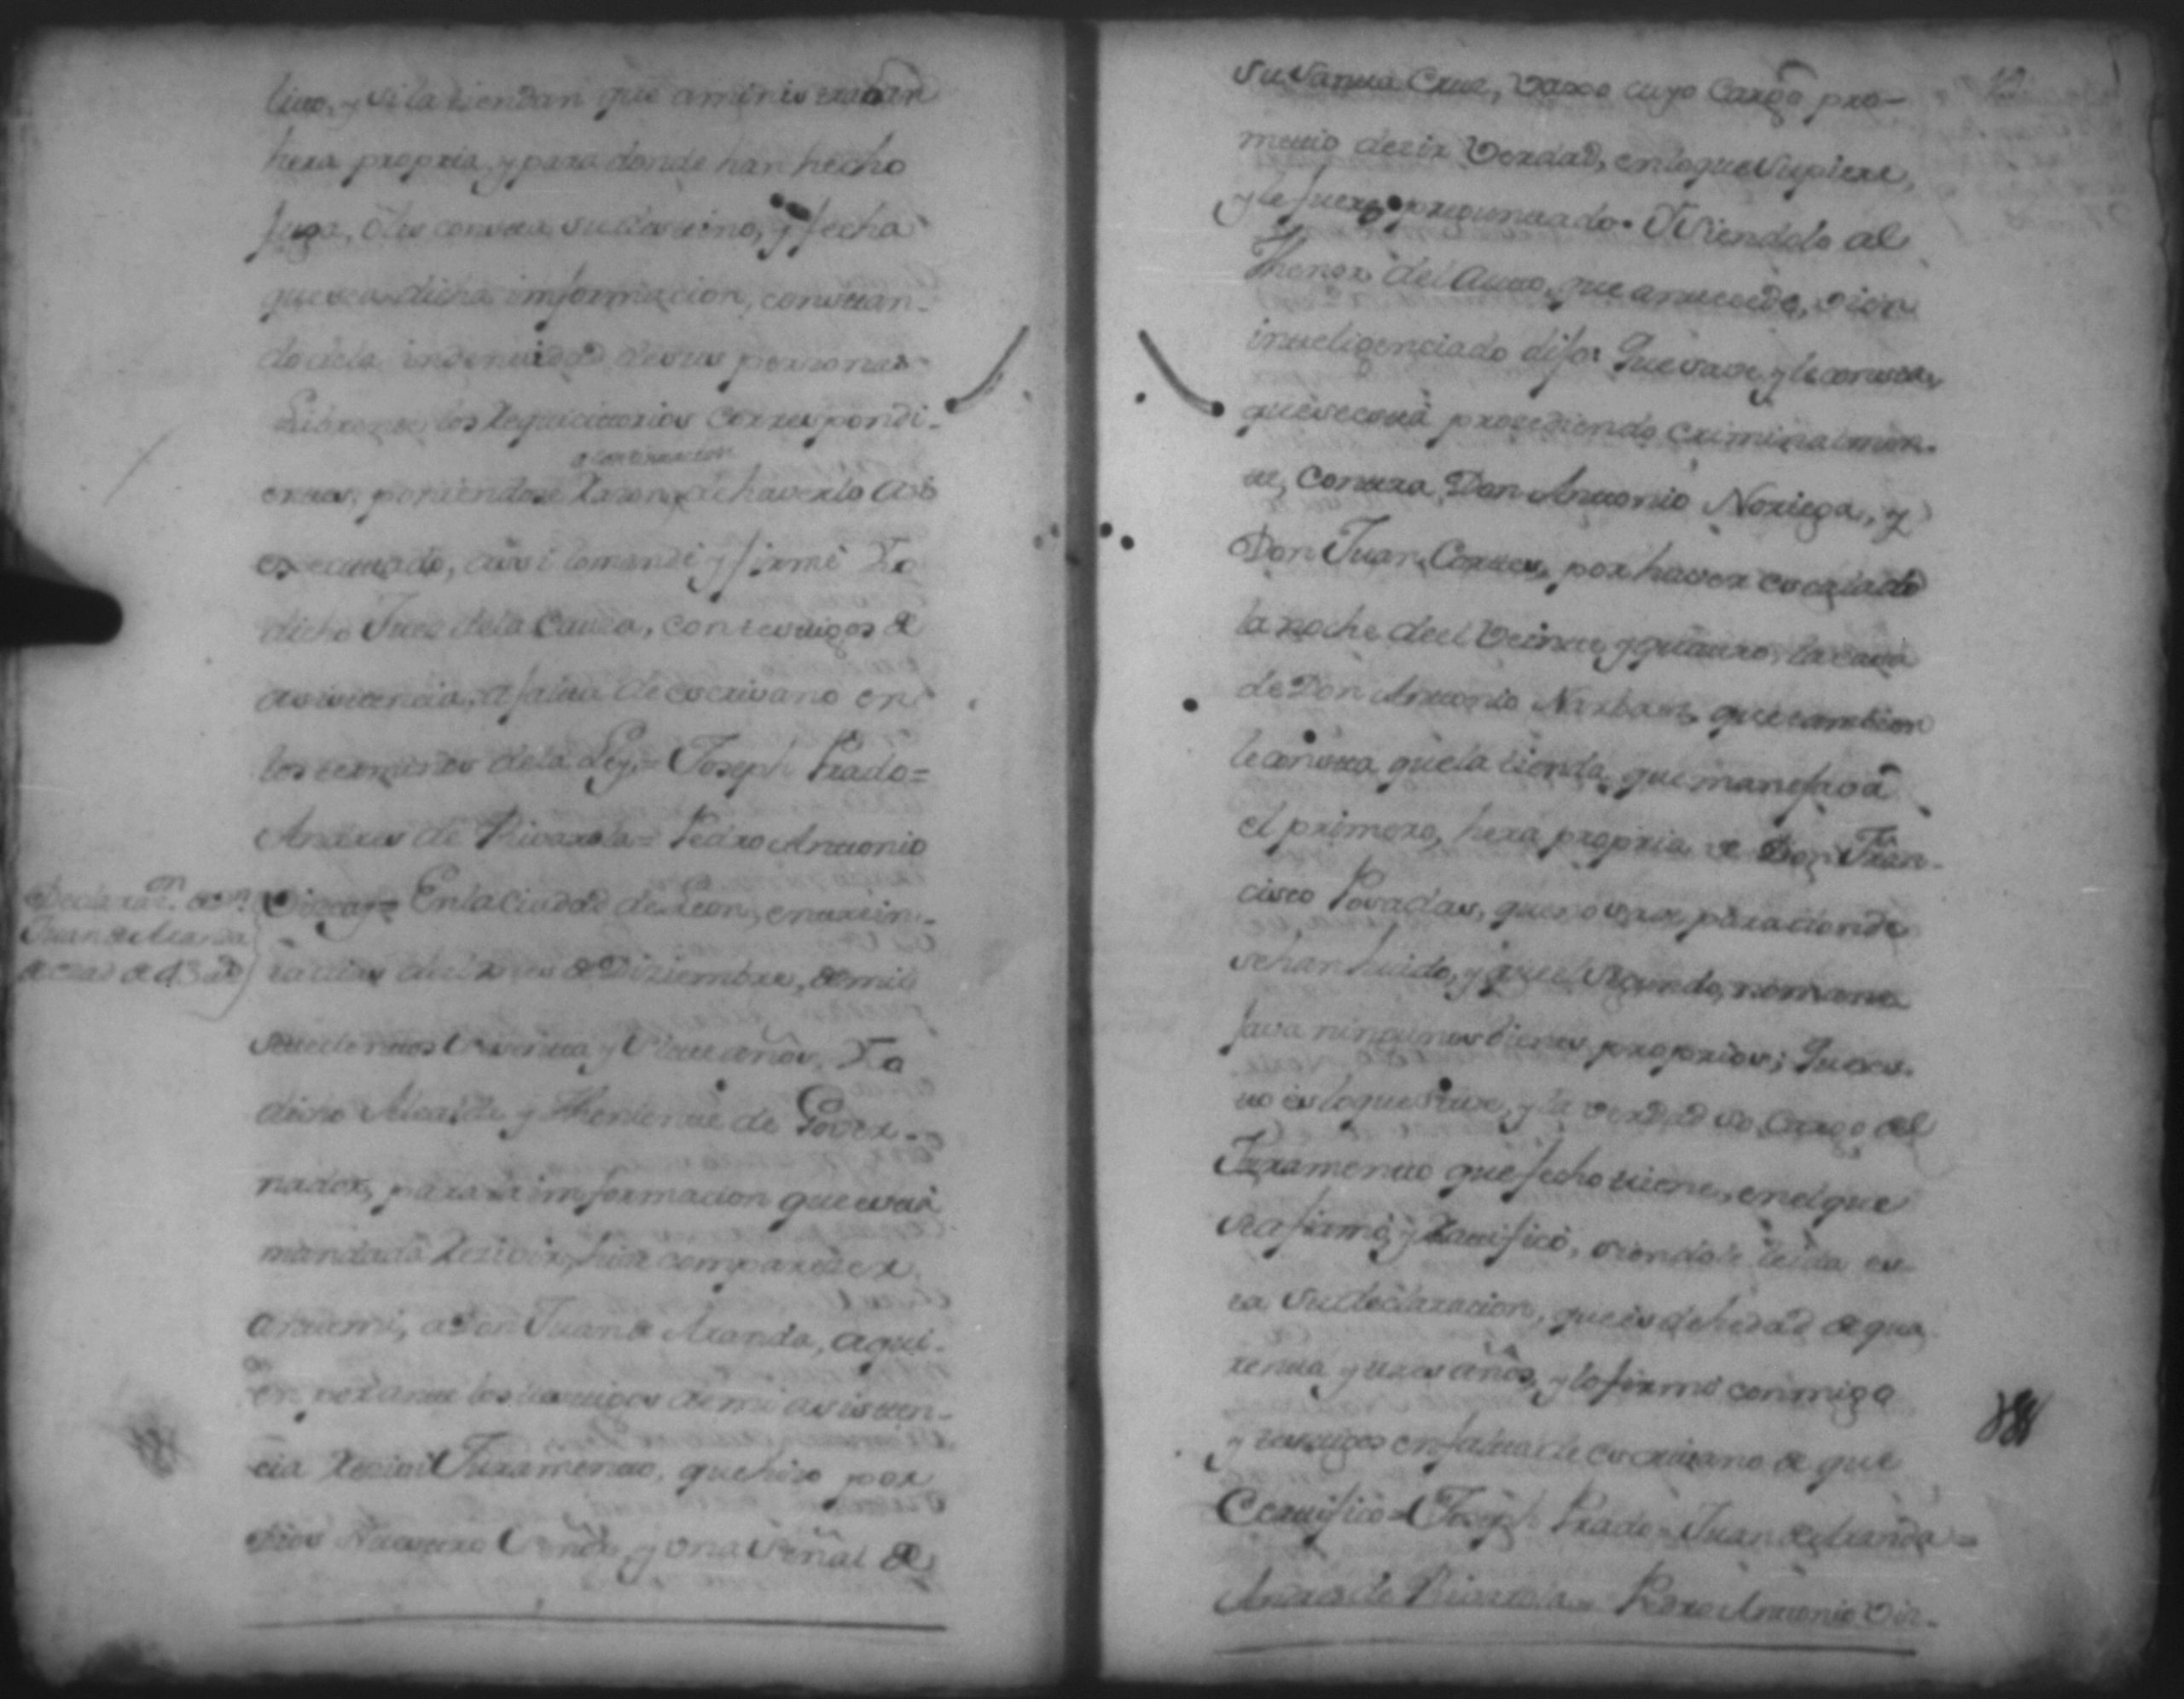 tivo, y si la tiendan que aminis traban
hera propria, y para donde han hecho
fuga, ô les consta su destino, y fecha
que sea dicha imformacion, constan-
do dela indentidad desus personas
Librense los Requicitorios correspondi-
a continuacion
entes, poniendose Razon de haverlo asi
executado, assi lo mandè y firmè Yo
dicho Juez dela Causa, con testigos de
asistencia, a falta de escrivano en
los terminos dela Ley = Joseph Prado =
Andres de Rivarola = Pedro Antonio
Declaraon. de Dn.
Juan de Aranda
de edad de 43 as
En la Ciudad de Leon, en trein-
ta dias del mes de Diziembre, de mil
setecientos setenta y siete años. Yo
dicho Alcalde y Theniente de Gover-
nador, para la imformacion que està
mandada Rezivir, hize comparezer
antemi, a Don Juan de Aranda, a qui-
en por ante los testigos de mi asisten-
cia Rezivì Juramento, que hizo por
Dios Nuestro Señor y una señal de
12
Su Santa Cruz, vaxo cuyo Cargo pro-
metio dezir Verdad, en loque Supiere,
y le fuere preguntado. Y Siendolo al
Thenor del Auto, que antecede, de el
inteligenciado dijo: Que save, y le consta,
que se està prosediendo criminalmen-
te, contra Don Antonio Noriega, y
Don Juan Cortes, por haver escalado
la noche deel veinte y quatro, la casa
de Don Antonio Narbaes, que tambien
le consta, que la tienda, que manejava
el primero, hera propria de Don Fran-
cisco Posadas, que no save para donde
se han huido, y que el segundo, no mane
java ningunos bienes proprios; Que es-
to es loque save, y la verdad so cargo del
Juramento que fecho tiene, en el que
se afirmò, y Ratificò, siendole leida es-
ta su declaracion, que es de hedad de qua
renta y tres años, y lo firmò conmigo
y testigos en falta de escrivano de que
Certifico = Joseph Prado = Juan de Aranda =
Andres de Rivarola = Pedro Antonio